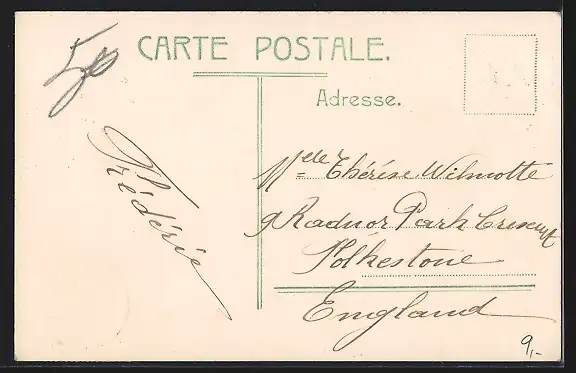 CARTE POSTALE.
Adresse.
Frédérie
Melle Thérèse Wilmotte
9 Radnor Park Crescent
Folkestone
England
9,-